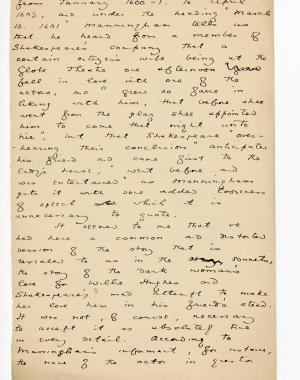 from January 1600-1. to April
1603, and under the heading "March
13. 1601 Manningham tells us
that he heard from a member of
Shakespeare's company that a
certain citizen's wife being at the
Globe Theatre one afternoon
fell in love with one of the
actors, and "grew so farre in
liking with him, that before shee
went from the play shee appointed
him to come that night unto
hir", but that Shakespeare "over-
-hearing their conclusion" anticipated
his friend and came first to the
lady's house, "went before and
was entertained" as Manningham
puts it with some added looseness
of speech which it is
unnecessary to quote.
It seems to me that we
had here a common and distorted
version of the story that is
revealed to us in the sonnets,
the story of the dark woman's
love for Willie Hughes and
Shakespeare's mad attempt to make
her love him in his friend's stead.
It was not, of course, necessary
to accept it as absolutely true
in every detail. According to
Manningham's informant, for instance,
the name of the actor in question